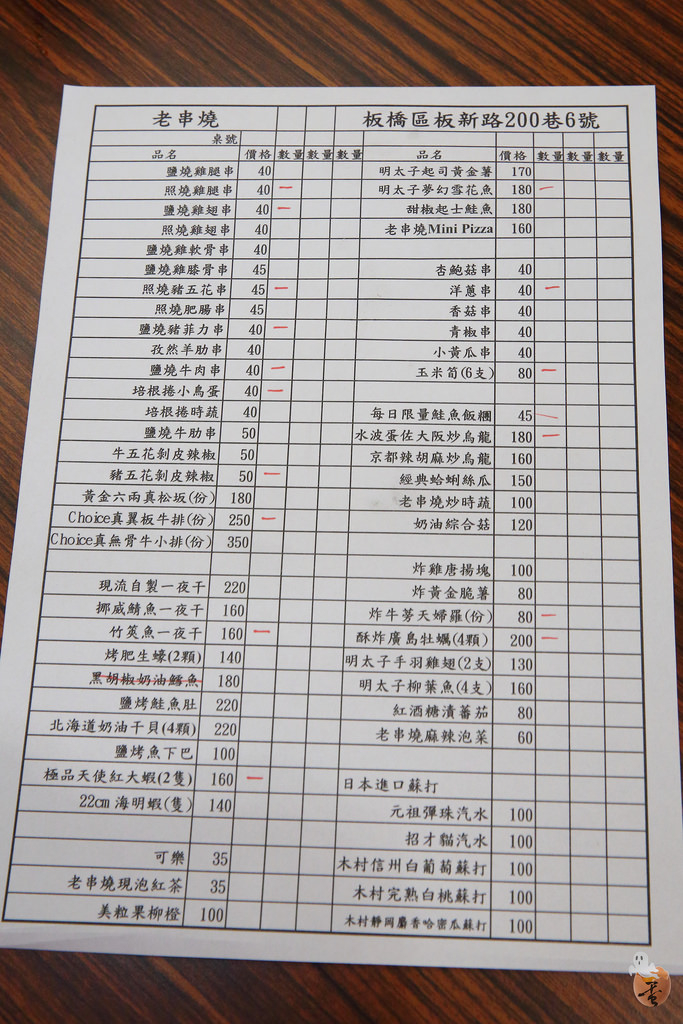 老串燒 板橋區板新路200巷6號
桌號
品名 價格 數量 數量 數量 品名 價格 數量 數量 數量
鹽燒雞腿串 40 明太子起司黃金薯 170
照燒雞腿串 40 一 明太子夢幻雪花魚 180 一
鹽燒雞翅串 40 一 甜椒起士鮭魚 180
照燒雞翅串 40 老串燒Mini Pizza 160
鹽燒雞軟骨串 40
鹽燒雞膝骨串 45 杏鮑菇串 40
照燒豬五花串 45 一 洋蔥串 40 一
照燒肥腸串 45 香菇串 40
鹽燒豬菲力串 40 一 青椒串 40
孜然羊肋串 40 小黃瓜串 40
鹽燒牛肉串 40 一 玉米筍(6支) 80 一
培根捲小鳥蛋 40 一
培根捲時蔬 40 每日限量鮭魚飯糰 45 一
鹽燒牛肋串 50 水波蛋佐大阪炒烏龍 180 一
牛五花剝皮辣椒 50 京都辣胡麻炒烏龍 160
豬五花剝皮辣椒 50 一 經典蛤蜊絲瓜 150
黃金六兩真松坂(份) 180 老串燒炒時蔬 100
Choice真翼板牛排(份) 250 一 奶油綜合菇 120
Choice真無骨牛小排(份) 350
炸雞唐揚塊 100
現流自製一夜干 220 炸黃金脆薯 80
挪威鯖魚一夜干 160 炸牛蒡天婦羅(份) 80 一
竹筴魚一夜干 160 一 酥炸廣島牡蠣(4顆) 200 一
烤肥生蠔(2顆) 140 明太子手羽雞翅(2支) 130
黑胡椒奶油鱈魚 180 明太子柳葉魚(4支) 160
鹽烤鮭魚肚 220 紅酒糖漬蕃茄 80
北海道奶油干貝(4顆) 220 老串燒麻辣泡菜 60
鹽烤魚下巴 100
極品天使紅大蝦(2隻) 160 一 日本進口蘇打
22cm 海明蝦(隻) 140 元祖彈珠汽水 100
招才貓汽水 100
可樂 35 木村信州白葡萄蘇打 100
老串燒現泡紅茶 35 木村完熟白桃蘇打 100
美粒果柳橙 100 木村靜岡麝香哈密瓜蘇打 100